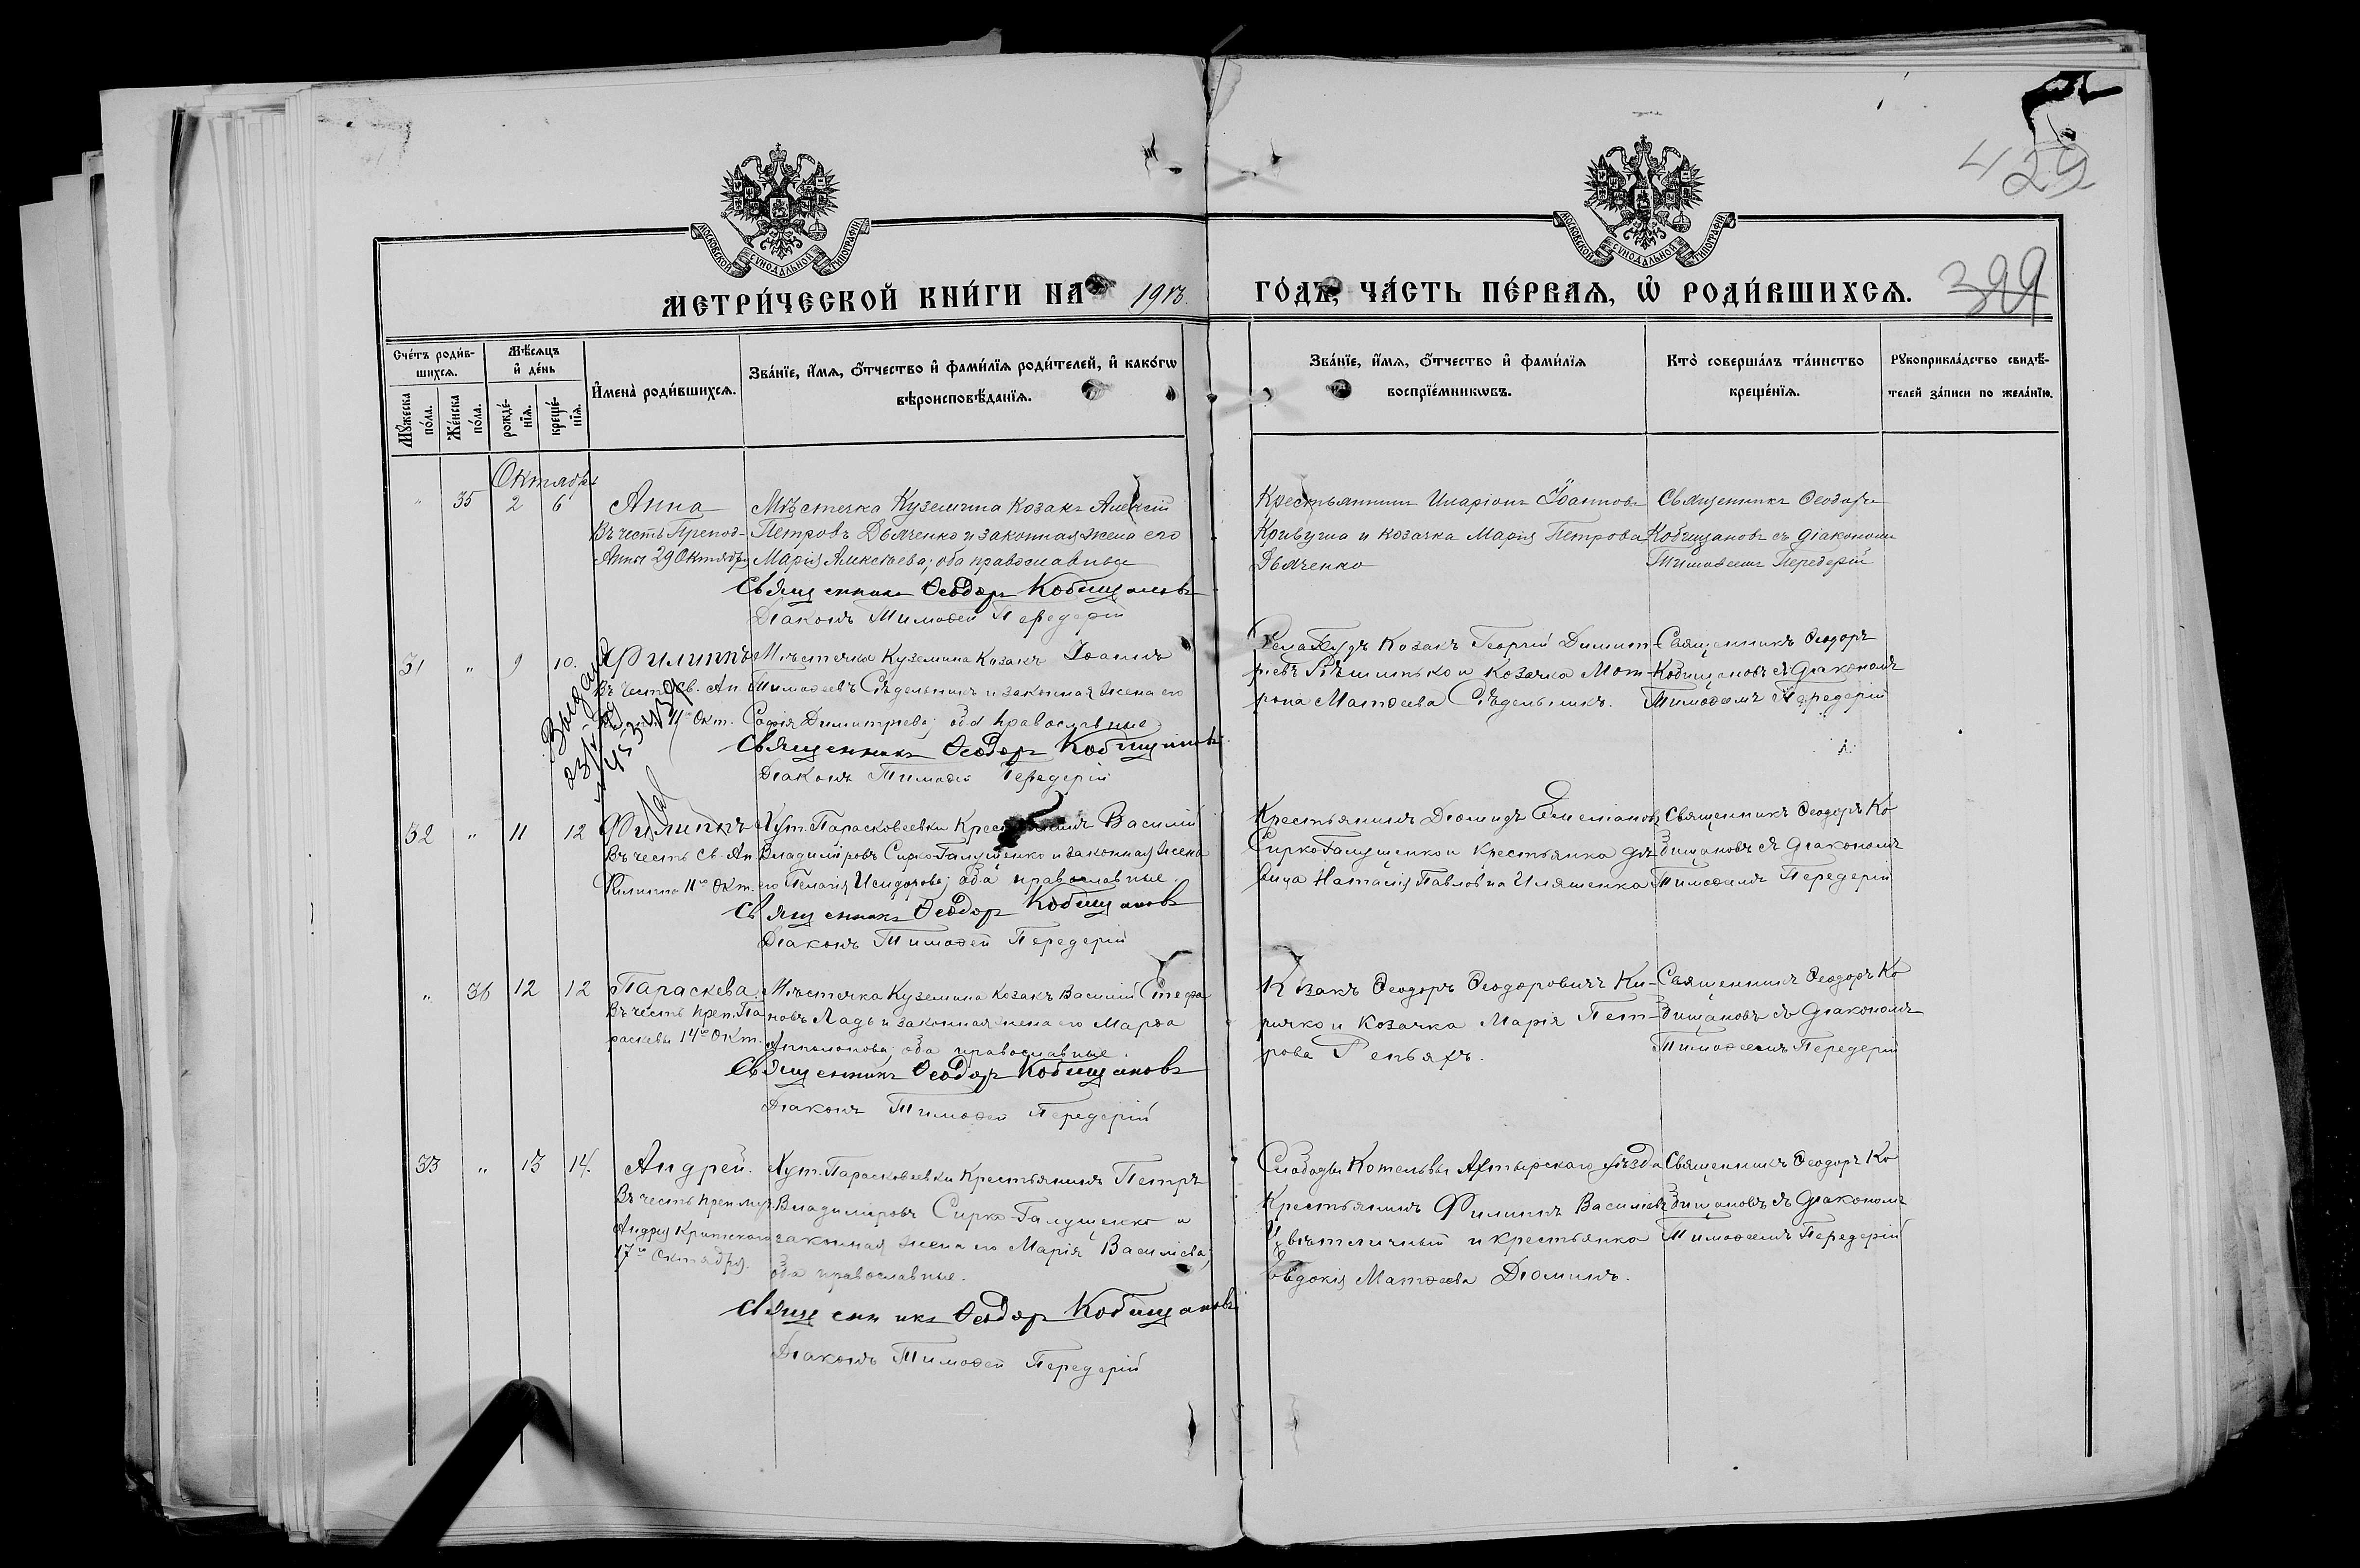 429
МОСКОВСКОЙ СѴНОДАЛЬНОЙ ТИПОГРАФІИ
МОСКОВСКОЙ СѴНОДАЛЬНОЙ ТИПОГРАФІИ
МЕТРИ́ЧЕСКОЙ КНИ́ГИ НА
ГО́ДЪ, ЧА́СТЬ ПЕ́РВАѦ, Ѡ҆ РОДИ́ВШИХСѦ.
399
Сче́тъ роди́в-
шихсѧ.
Мꙋ́жеска
по́ла.
Же́нска
по́ла.
Мѣ́сѧцъ
и҆ де́нь
рожде́-
нїѧ.
креще́-
нїѧ.
И҆мена̀ роди́вшихсѧ.
Зва́нїе, и҆́мѧ, ѻ҆́тчество и҆ фами́лїѧ роди́телей, и҆ како́гѡ
вѣроисповѣ́данїѧ.
Зва́нїе, и҆́мѧ, ѻ҆́тчество и҆ фами́лїѧ
воспрїе́мникѡвъ.
Кто̀ соверша́лъ та́инство
креще́нїѧ.
Рꙋкоприкла́дство свидѣ́-
телей за́писи по жела́нїю.
Октябрь
" 35 2 6
Анна
Въ честь Препод-
Анны 29 Октября
Мѣстечка Куземина Козакъ Алексій
Петровъ Дьяченко и законная жена его
Марія Алексѣева; оба православные
Священникъ Ѳеодоръ Кобищановъ
Діаконъ Тимоѳей Передерій
Крестьянинъ Иларіонъ Іоанновъ
Кривуша и козачка Марія Петрова
Дьяченко
Священникъ Ѳеодоръ
Кобищановъ съ діакономъ
Тимоѳеемъ Передерій
31 " 9 10.
Филиппъ
Въ честь Св. Ап.
11го Окт.
Мѣстечка Куземина Козакъ Іоаннъ
Тимоѳеевъ Сѣдельникъ и законная жена его
Софія Димитріева; оба православные
Священникъ Ѳеодоръ Кобищановъ
Діаконъ Тимоѳей Передерій
Козакъ Георгій Димит-
ріевъ Рѣшитько и Козачка Мот-
рона Матѳеева Сѣдельникъ.
Священникъ Ѳеодоръ
Кобищановъ съ Діакономъ
Тимоѳеемъ Передерій
32 " 11 12
Филиппъ
Въ честь Св. Ап.
Филиппа 11го Окт.
Хут. Парасковеевки Крестьянинъ Василій
Владиміровъ Сирко-Галущенко и законная жена
его Пелагія Исидорова; оба православные.
Священникъ Ѳеодоръ Кобищановъ
Діаконъ Тимоѳей Передерій
Крестьянинъ Діомидъ Емеліановъ
Сирко Галущенко и крестьянка дѣ-
вица Наталія Павловна Иляшенко
Священникъ Ѳеодоръ Ко
бищановъ съ Діакономъ
Тимоѳеемъ Передерій
" 36 12 12
Параскева.
Въ честь преп. Па
раскевы 14го Окт.
Мѣстечка Куземина Козакъ Василій Стефа
новъ Ладъ и законная жена его Марѳа
оба православные.
Священникъ Ѳеодоръ Кобищановъ
Діаконъ Тимоѳей Передерій
Козакъ Ѳеодоръ Ѳеодоровичъ Ки-
ричко и Козачка Марія Пет-
рова Репьяхъ.
Священникъ Ѳеодоръ Ко
бищановъ съ Діакономъ
Тимоѳеемъ Передерій
33 " 13 14.
Андрей.
Въ честь преп. муч.
Андрея Критскаго
17го Октября.
Хут. Парасковеевки Крестьянинъ Петръ
Владиміровъ Сирко-Галущенко и
законная жена его Марія Василіева;
оба православные.
Священникъ Ѳеодоръ Кобищановъ
Діаконъ Тимоѳей Передерій
Слободы Котельвы Ахтырскаго уѣзда
Крестьянинъ Филиппъ Василіевъ
Цвѣтличный и крестьянка
Евдокія Матѳеева Діоминъ.
Священникъ Ѳеодоръ Ко
бищановъ съ Діакономъ
Тимоѳеемъ Передерій